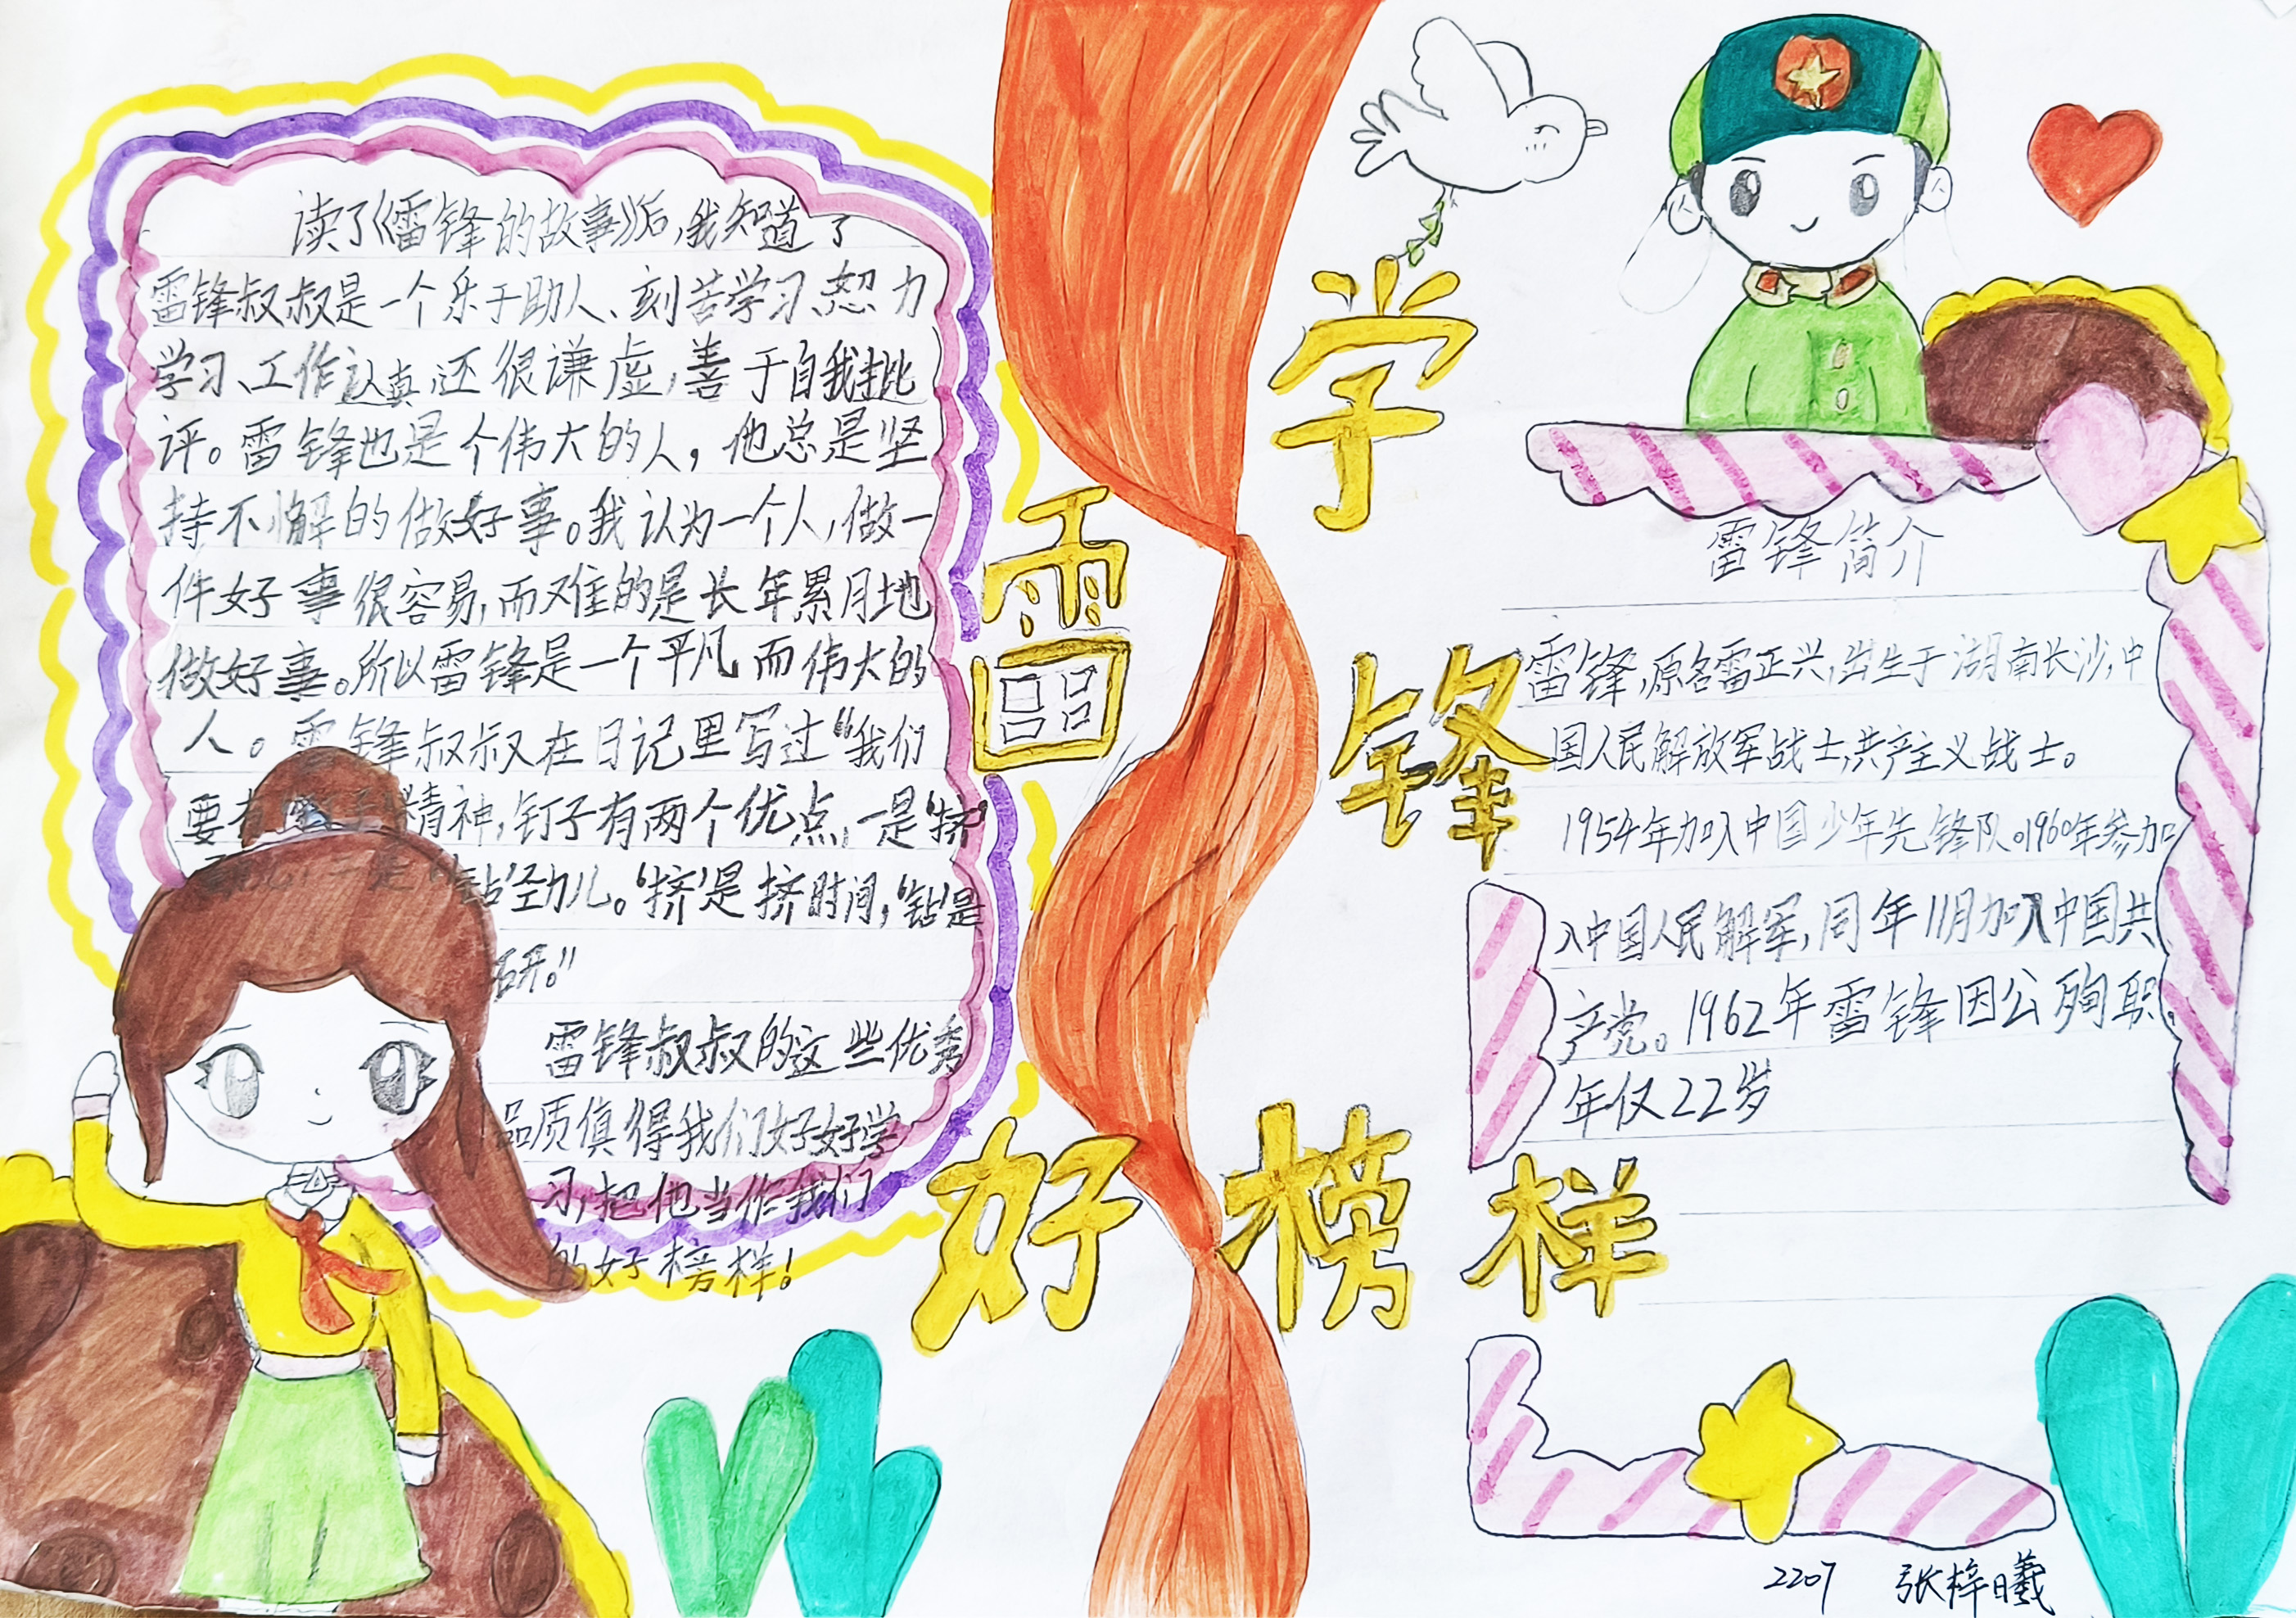 学
雷
锋
好榜样
读了《雷锋的故事》后,我知道了
雷锋叔叔是一个乐于助人、刻苦学习、恕力
学习、工作认真,还很谦虚,善于自我批
评。雷锋也是个伟大的人,他总是坚
持不懈的做好事。我认为一个人,做一
件好事很容易,而难的是长年累月地
做好事。所以雷锋是一个平凡而伟大的
人。雷锋叔叔在日记里写过“我们
要有 精神,钉子有两个优点,一是“挤”
一是“钻”劲儿。“挤”是挤时间,“钻”是
研。”
雷锋叔叔的这些优秀
品质值得我们好好学
习,把他当作我们
的好榜样!
雷锋简介
雷锋,原名雷正兴,出生于湖南长沙,中
国人民解放军战士,共产主义战士。
1954年加入中国少年先锋队。1960年参加
入中国人民解军,同年11月加入中国共
产党。1962年雷锋因公殉职,
年仅22岁
2207 张梓曦